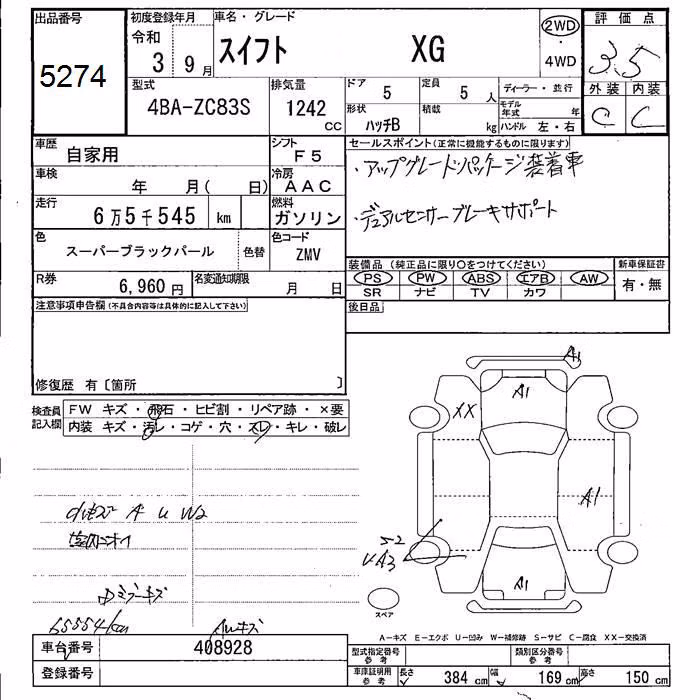 出品番号
5274
初度登録年月
令和
3 9月
車名・グレード
スイフト XG
2WD
・
4WD
評価点
3.5
外装 内装
C C
型式
4BA-ZC83S
排気量
1242
cc
ドア
5
定員
5 人
ディーラー・並行
形状
ハッチB
積載
kg
モデル年式 年
ハンドル 左・右
車歴
自家用
シフト
F5
車検
年 月( 日)
冷房
AAC
走行
6万5千545 km
燃料
ガソリン
色
スーパーブラックパール
色替
色コード
ZMV
R券
6,960 円
名変通知期限
月 日
セールスポイント(正常に機能するものに限ります)
・アップグレードパッケージ装着車
・デュアルセンサーブレーキサポート
装備品(純正品に限り○をつけてください)
PS PW ABS エアB AW
SR ナビ TV カワ
新車保証書
有・無
後日品
注意事項申告欄(不具合内容等は具体的に記入して下さい)
修復歴 有〔箇所 〕
検査員記入欄
FW キズ・飛石・ヒビ割・リペア跡・×要
内装 キズ・汚レ・コゲ・穴・スレ・キレ・破レ
A1
A1
XX
A1
S2
A3
A1
スペア
A U W2
室内ニオイ
ミラーキズ
65554km
AWキズ
A−キズ E−エクボ U−凹み W−補修跡 S−サビ C−腐食 XX−交換済
車台番号
408928
登録番号
型式指定番号
参考
類別区分番号
参考
車庫証明用
参考
長さ 384 cm
幅 169 cm
高さ 150 cm